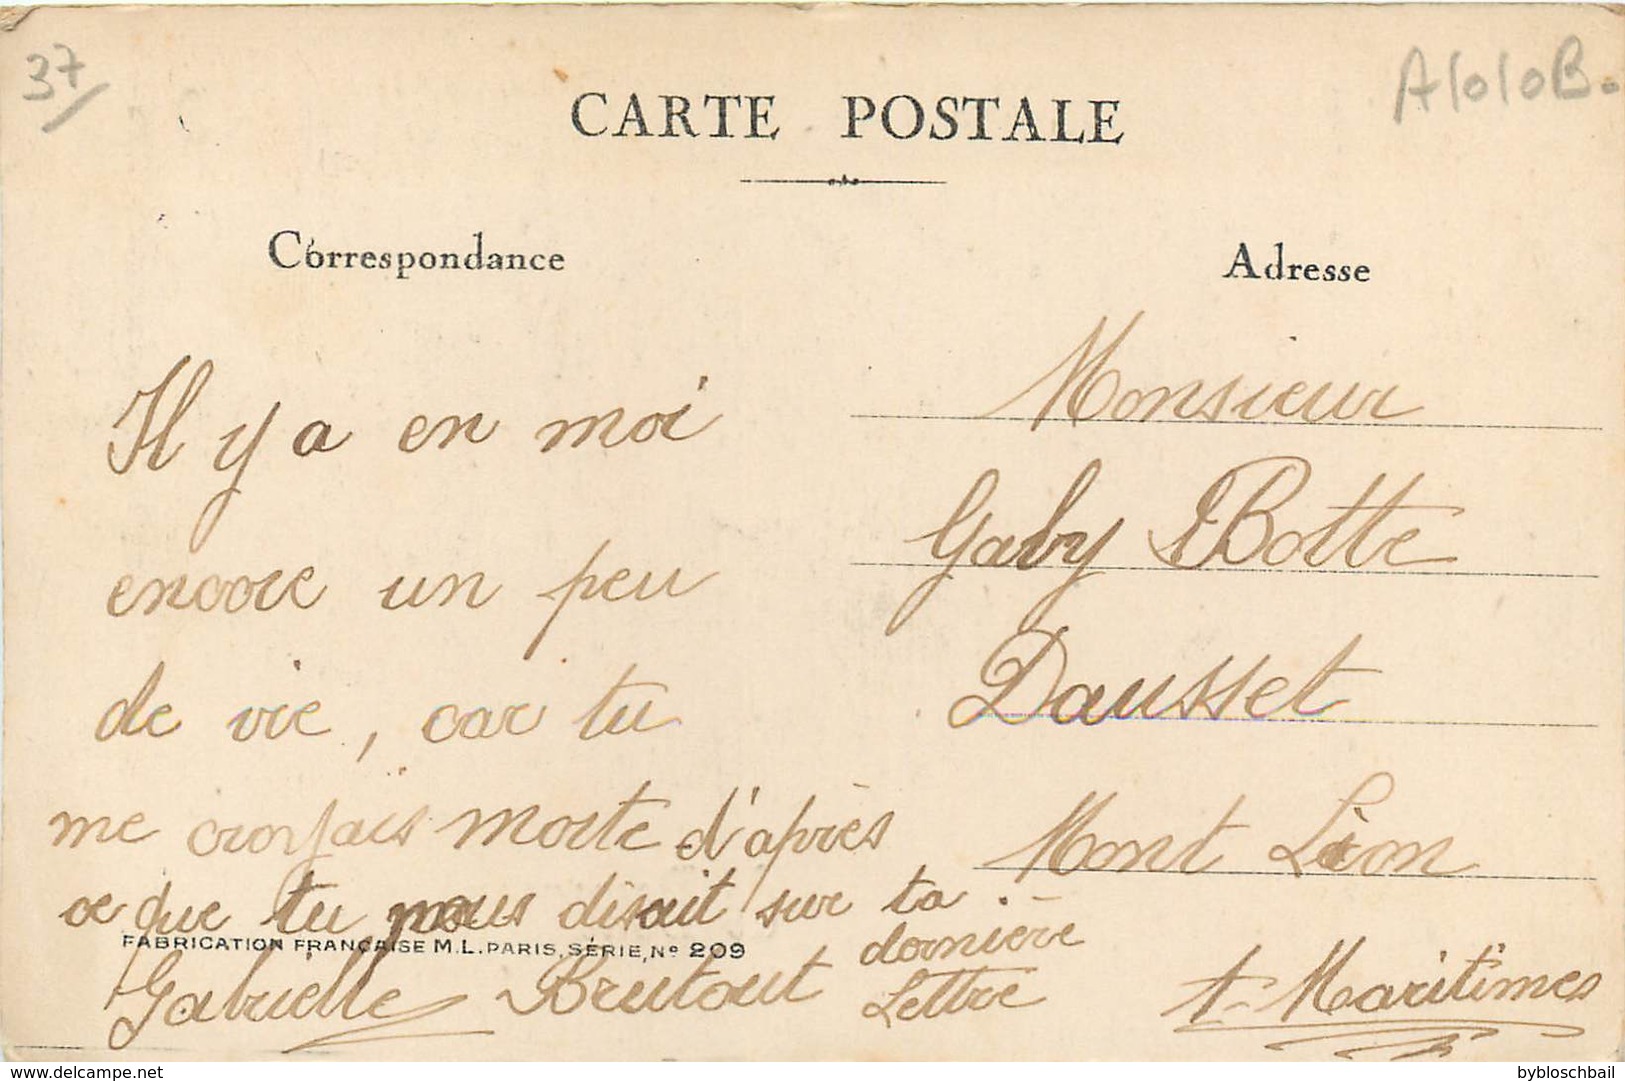 37
A/0/0B.
CARTE POSTALE
Correspondance
Adresse
Il y a en moi
encore un peu
de vie, car tu
me croyais morte d'après
ce que tu nous disait sur ta
dernière
Lettre
Gabrielle Brutout
FABRICATION FRANÇAISE M.L. PARIS, SÉRIE, No 209
Monsieur
Gaby Botte
Dausset
Mont Léon
A-Maritimes
www.delcampe.net
bybloschbail